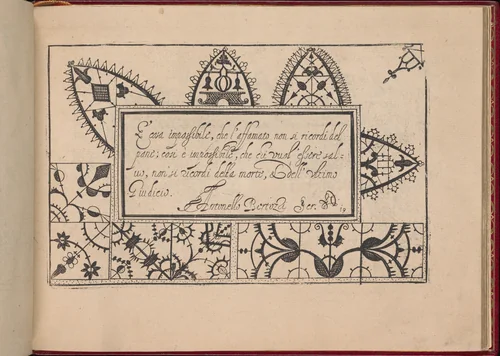 E' cosa impossibile, che l'affamato non si ricordi del
pane; così è impossibile, che chi vuol' essere sal-
uo, non si ricordi della morte, & dell' ultimo
Giudicio.
Antonello Bertozzi Scr.
19